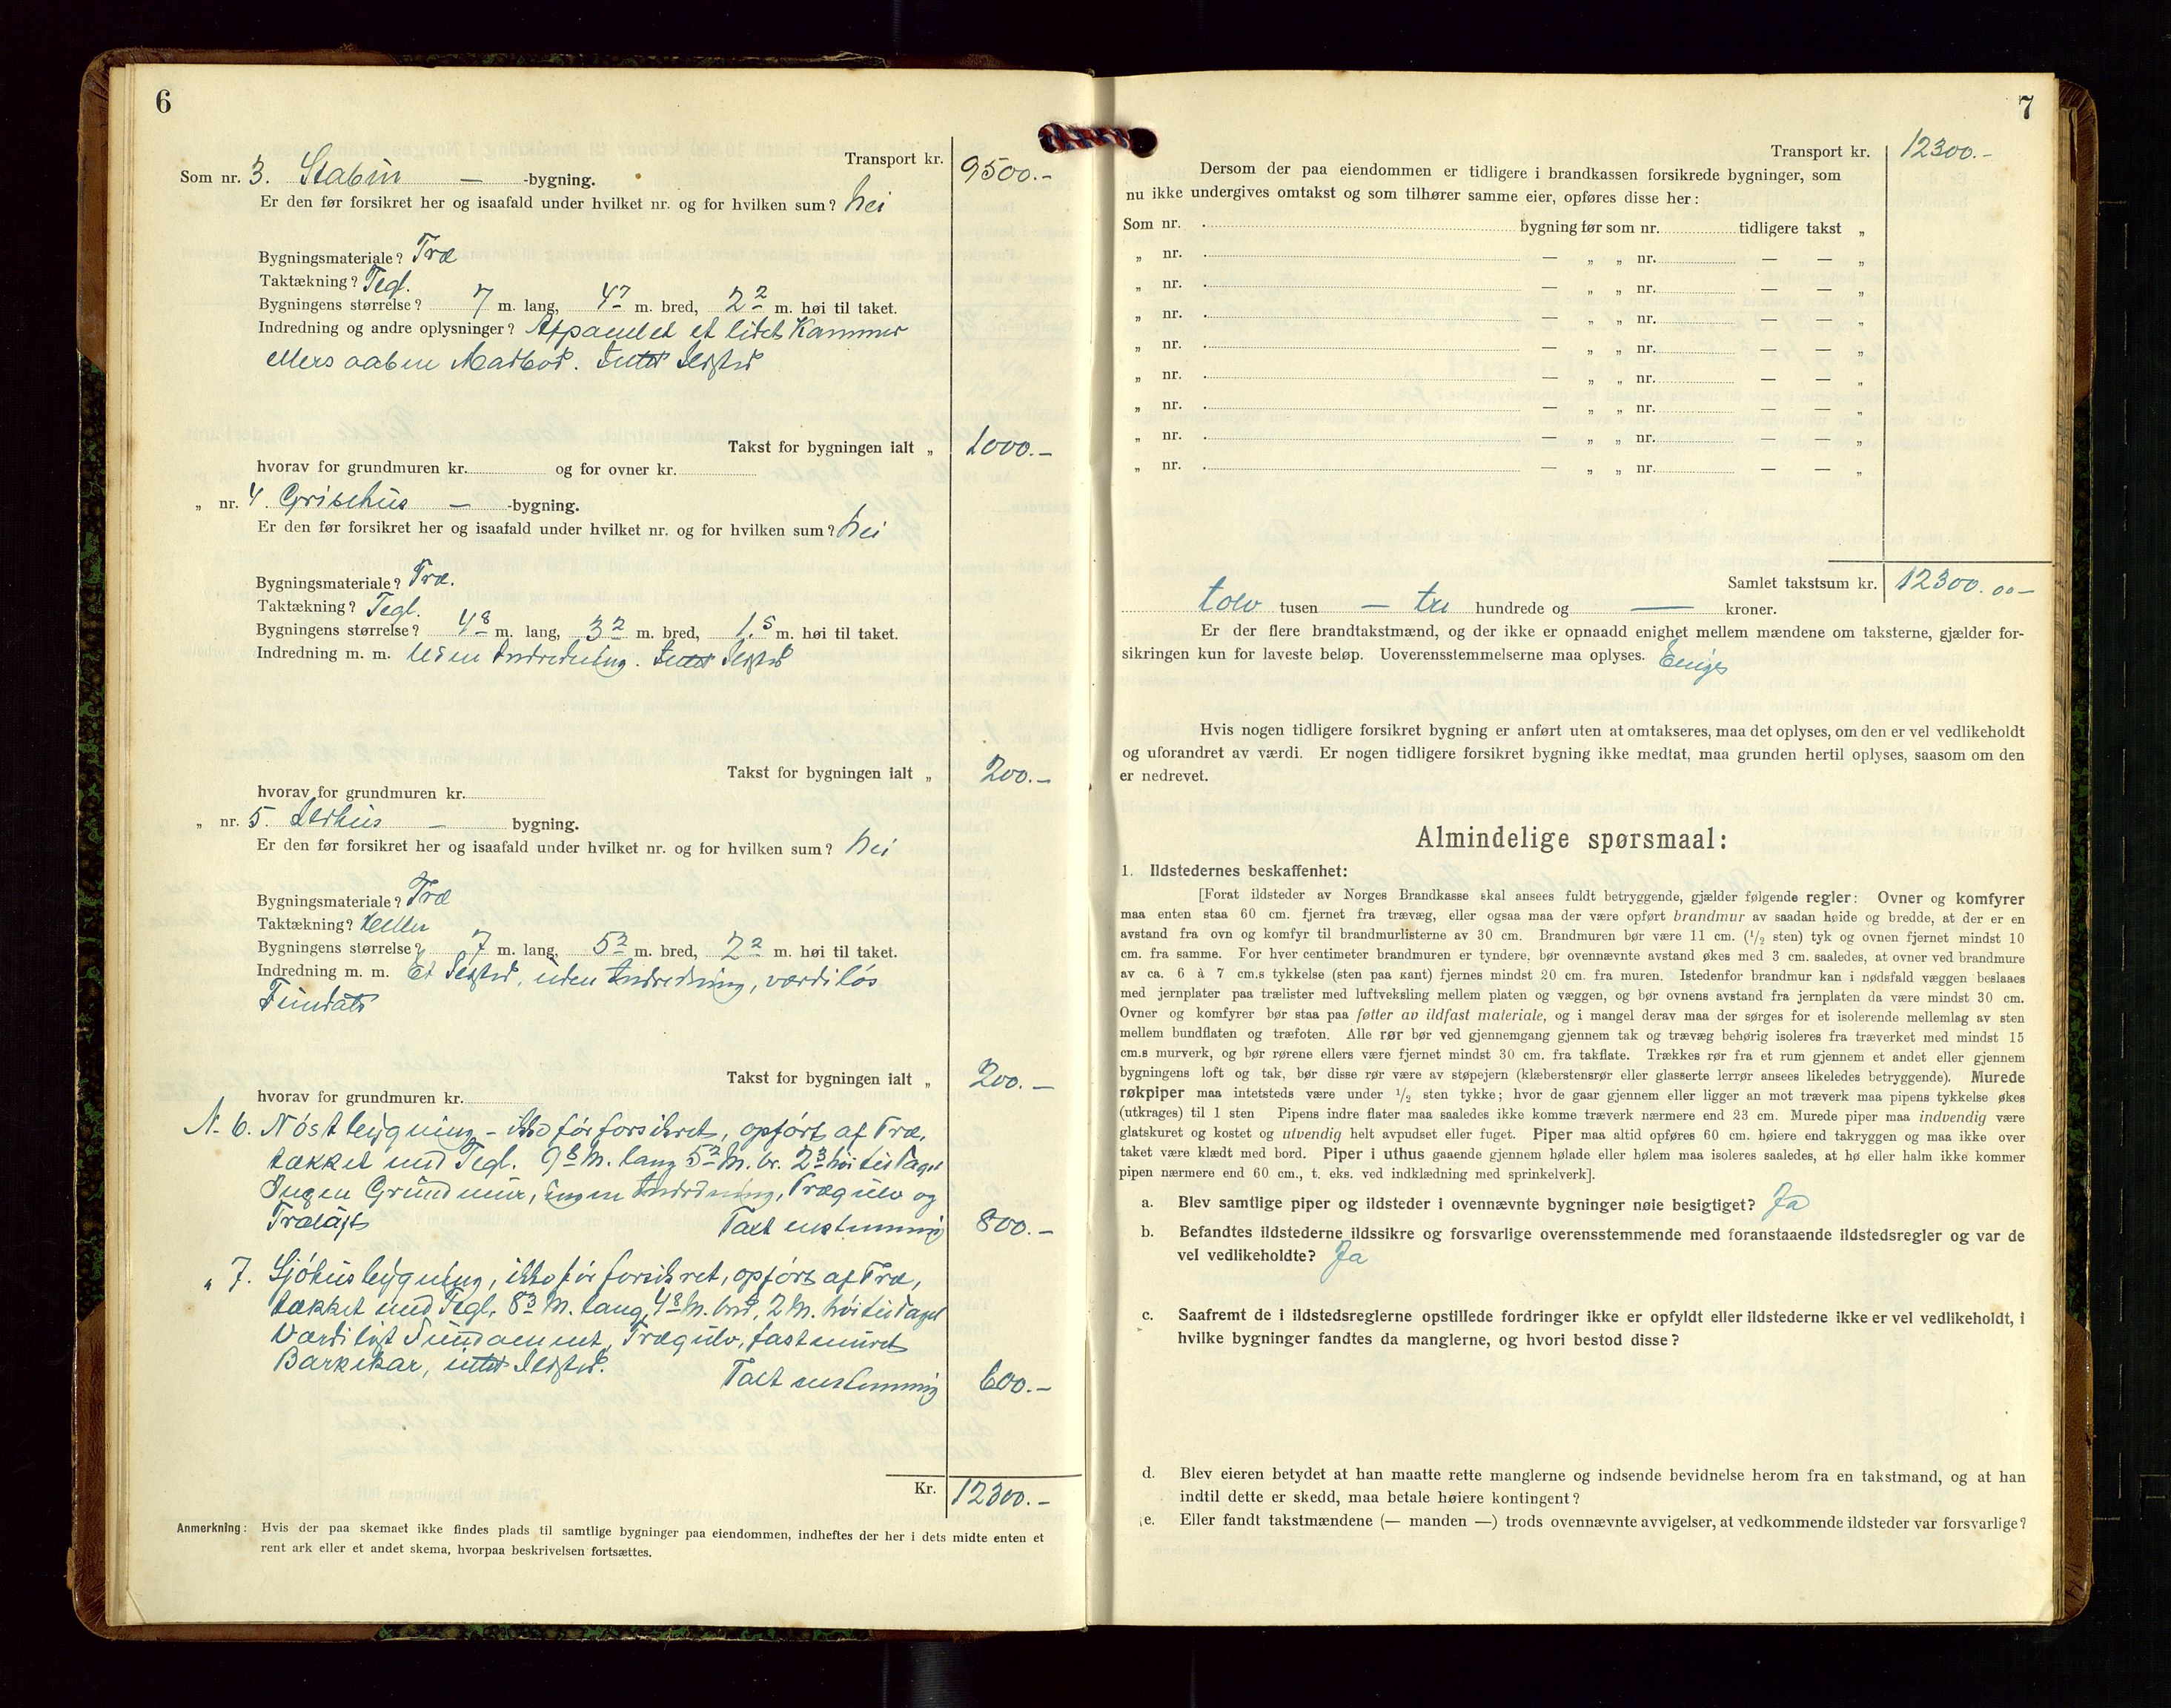 6
Transport kr. 9500.-
Som nr. 3. Stabur — -bygning.
Er den før forsikret her og isaafald under hvilket nr. og for hvilken sum? Nei
Bygningsmateriale? Træ
Taktækning? Tegl.
Bygningens størrelse? 7 m. lang, 4⁷ m. bred, 2² m. høi til taket.
Indredning og andre oplysninger? Afpanelet et lidet Kammer
ellers aaben Madbod. Intet Ildsted
Takst for bygningen ialt „ 1000.-
hvorav for grundmuren kr. og for ovner kr.
„ nr. 4. Grisehus — -bygning.
Er den før forsikret her og isaafald under hvilket nr. og for hvilken sum? Nei
Bygningsmateriale? Træ.
Taktækning? Tegl.
Bygningens størrelse? 4⁸ m. lang, 3² m. bred, 1.⁵ m. høi til taket.
Indredning m. m. Uden Indredning. Intet Ildsted
Takst for bygningen ialt „ 200.-
hvorav for grundmuren kr.
„ nr. 5. Ildhus — bygning.
Er den før forsikret her og isaafald under hvilket nr. og for hvilken sum? Nei
Bygningsmateriale? Træ
Taktækning? Heller
Bygningens størrelse? 7 m. lang, 5² m. bred, 2² m. høi til taket.
Indredning m. m. Et Ildsted, uden Indredning, værdiløs
Fundats
Takst for bygningen ialt „ 200.-
hvorav for grundmuren kr.
N. 6. Nøstbygning - ikke før forsikret, opført af Træ,
tækket med Tegl. 9⁸ M. lang 5² M. br. 2³ høi til Taget
Ingen Grundmur, ingen Indredning, Trægulv og
Træloft Taxt enstemmig 800.-
„ 7. Sjøhusbygning, ikke før forsikret, opført af Træ,
tækket med Tegl, 8³ M. lang, 4⁸ M. bred, 2 M. høi til Taget
Værdiløst Fundament, Trægulv, fastmuret
Barkekar, intet Ildsted. Taxt enstemmig 600.-
Kr. 12300.-
Anmerkning: Hvis der paa skemaet ikke findes plads til samtlige bygninger paa eiendommen, indheftes der her i dets midte enten et
rent ark eller et andet skema, hvorpaa beskrivelsen fortsættes.
7
Transport kr. 12300.-
Dersom der paa eiendommen er tidligere i brandkassen forsikrede bygninger, som
nu ikke undergives omtakst og som tilhører samme eier, opføres disse her:
Som nr. bygning før som nr. tidligere takst „
„ nr. — „ „ nr. — — „
„ nr. — „ „ nr. — — „
„ nr. — „ „ nr. — — „
„ nr. — „ „ nr. — — „
„ nr. — „ „ nr. — — „
„ nr. — „ „ nr. — — „
„ nr. — „ „ nr. — — „
„ nr. — „ „ nr. — — „
Samlet takstsum kr. 12300.00-
tolv tusen — tre hundrede og — kroner.
Er der flere brandtakstmænd, og der ikke er opnaadd enighet mellem mændene om taksterne, gjælder for-
sikringen kun for laveste beløp. Uoverensstemmelserne maa oplyses. Eniges
Hvis nogen tidligere forsikret bygning er anført uten at omtakseres, maa det oplyses, om den er vel vedlikeholdt
og uforandret av værdi. Er nogen tidligere forsikret bygning ikke medtat, maa grunden hertil oplyses, saasom om den
er nedrevet.
Almindelige spørsmaal:
1. Ildstedernes beskaffenhet:
[Forat ildsteder av Norges Brandkasse skal ansees fuldt betryggende, gjælder følgende regler: Ovner og komfyrer
maa enten staa 60 cm. fjernet fra trævæg, eller ogsaa maa der være opført brandmur av saadan høide og bredde, at der er en
avstand fra ovn og komfyr til brandmurlisterne av 30 cm. Brandmuren bør være 11 cm. (1/2 sten) tyk og ovnen fjernet mindst 10
cm. fra samme. For hver centimeter brandmuren er tyndere, bør ovennævnte avstand økes med 3 cm. saaledes, at ovner ved brandmure
av ca. 6 à 7 cm.s tykkelse (sten paa kant) fjernes mindst 20 cm. fra muren. Istedenfor brandmur kan i nødsfald væggen beslaaes
med jernplater paa trælister med luftveksling mellem platen og væggen, og bør ovnens avstand fra jernplaten da være mindst 30 cm.
Ovner og komfyrer bør staa paa føtter av ildfast materiale, og i mangel derav maa der sørges for et isolerende mellemlag av sten
mellem bundflaten og træfoten. Alle rør bør ved gjennemgang gjennem tak og trævæg behørig isoleres fra træverket med mindst 15
cm.s murverk, og bør rørene ellers være fjernet mindst 30 cm. fra takflate. Trækkes rør fra et rum gjennem et andet eller gjennem
bygningens loft og tak, bør disse rør være av støpejern (klæberstensrør eller glasserte lerrør ansees likeledes betryggende). Murede
røkpiper maa intetsteds være under 1/2 sten tykke; hvor de gaar gjennem eller ligger an mot træverk maa pipens tykkelse økes
(utkrages) til 1 sten Pipens indre flater maa saaledes ikke komme træverk nærmere end 23 cm. Murede piper maa indvendig være
glatskuret og kostet og utvendig helt avpudset eller fuget. Piper maa altid opføres 60 cm. høiere end takryggen og maa ikke over
taket være klædt med bord. Piper i uthus gaaende gjennem hølade eller hølem maa isoleres saaledes, at hø eller halm ikke kommer
pipen nærmere end 60 cm., t. eks. ved indklædning med sprinkelverk].
a. Blev samtlige piper og ildsteder i ovennævnte bygninger nøie besigtiget? Ja
b. Befandtes ildstederne ildssikre og forsvarlige overensstemmende med foranstaaende ildstedsregler og var de
vel vedlikeholdte? Ja
c. Saafremt de i ildstedsreglerne opstillede fordringer ikke er opfyldt eller ildstederne ikke er vel vedlikeholdt, i
hvilke bygninger fandtes da manglerne, og hvori bestod disse?
d. Blev eieren betydet at han maatte rette manglerne og indsende bevidnelse herom fra en takstmand, og at han
indtil dette er skedd, maa betale høiere kontingent?
e. Eller fandt takstmændene (— manden —) trods ovennævnte avvigelser, at vedkommende ildsteder var forsvarlige?